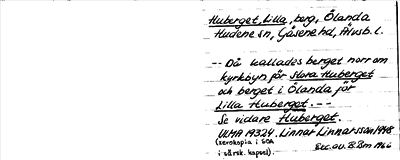 Huberget, Lilla, berg, Ölanda
Hudene sn, Gäsene hd, Älvsb. l.
-- Då kallades berget norr om
kyrkbyn för stora Huberget
och berget i Ölanda för
Lilla Huberget. --
Se vidare Huberget.
ULMA 19324. Linnar Linnarsson 1948
(xerokopia i SOA
i särsk. kapsel).
Exc. av. B Bm 1966